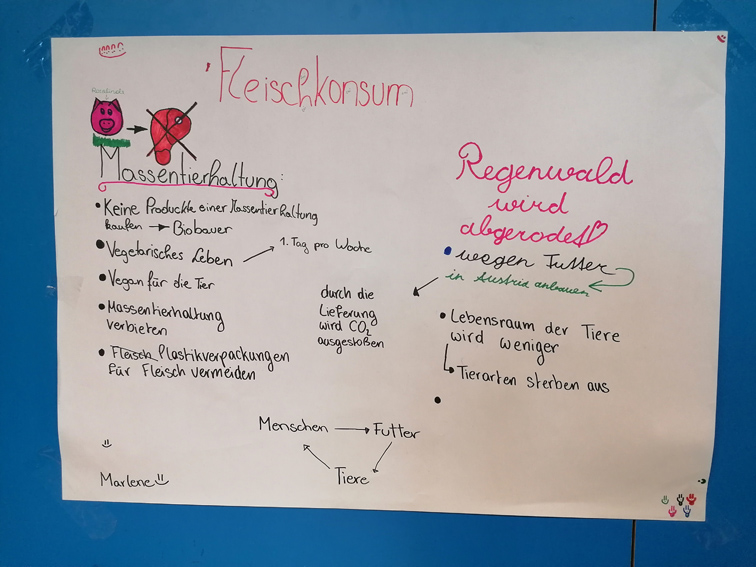 Fleischkonsum
Massentierhaltung:
• Keine Produckte einer Massentierhaltung
kaufen → Biobauer
• Vegetarisches Leben → 1. Tag pro Woche
• Vegan für die Tier
• Massentierhaltung
verbieten
• Fleisch Plastikverpackungen
für Fleisch vermeiden
durch die
Lieferung
wird CO2
ausgestoßen
Regenwald
wird
abgerodet
• wegen Futter
in Austria anbauen
• Lebensraum der Tiere
wird weniger
Tierarten sterben aus
Menschen → Futter
Tiere
Marlene